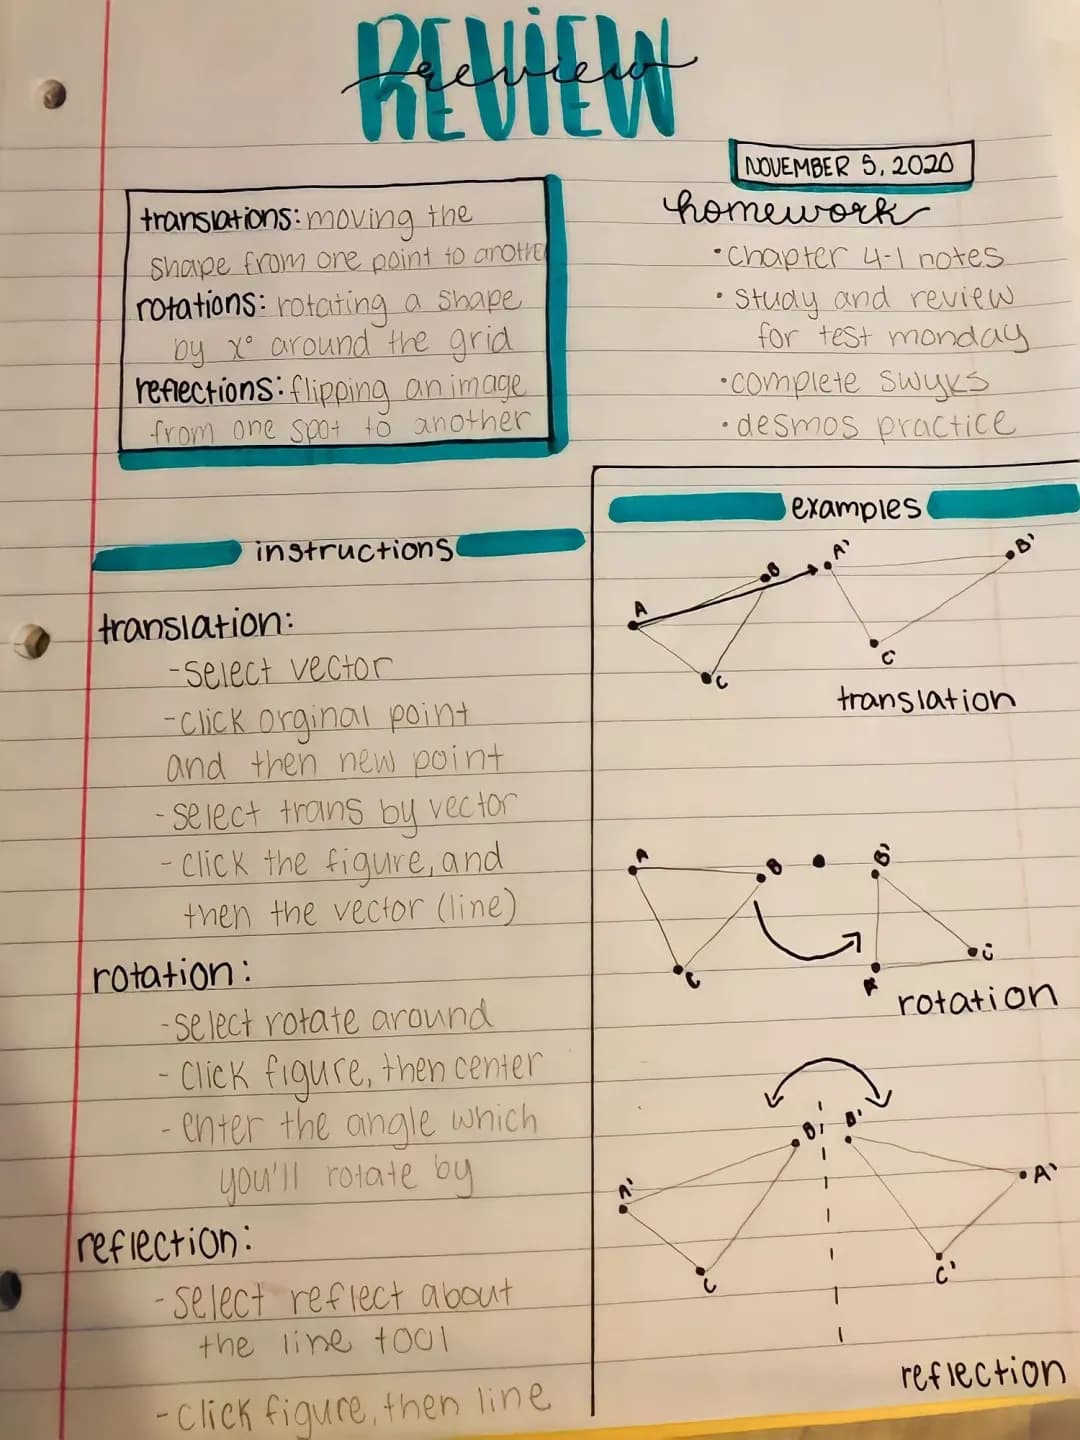 REVIEW
review
NOVEMBER 5, 2020
translations: moving the
shape from one point to another
rotations: rotating a shape
by x° around the grid
reflections: flipping an image
from one spot to another
homework
• Chapter 4-1 notes
• Study and review
for test monday
• complete swyks
• desmos practice
instructions
translation:
- select vector
- click orginal point
and then new point
- select trans by vector
- click the figure, and
then the vector (line)
rotation:
- select rotate around
- click figure, then center
- enter the angle which
you'll rotate by
reflection:
- select reflect about
the line tool
- click figure, then line
examples
A B A' B'
C C
translation
A B B'
C A C
rotation
B B'
A' A'
C C'
reflection